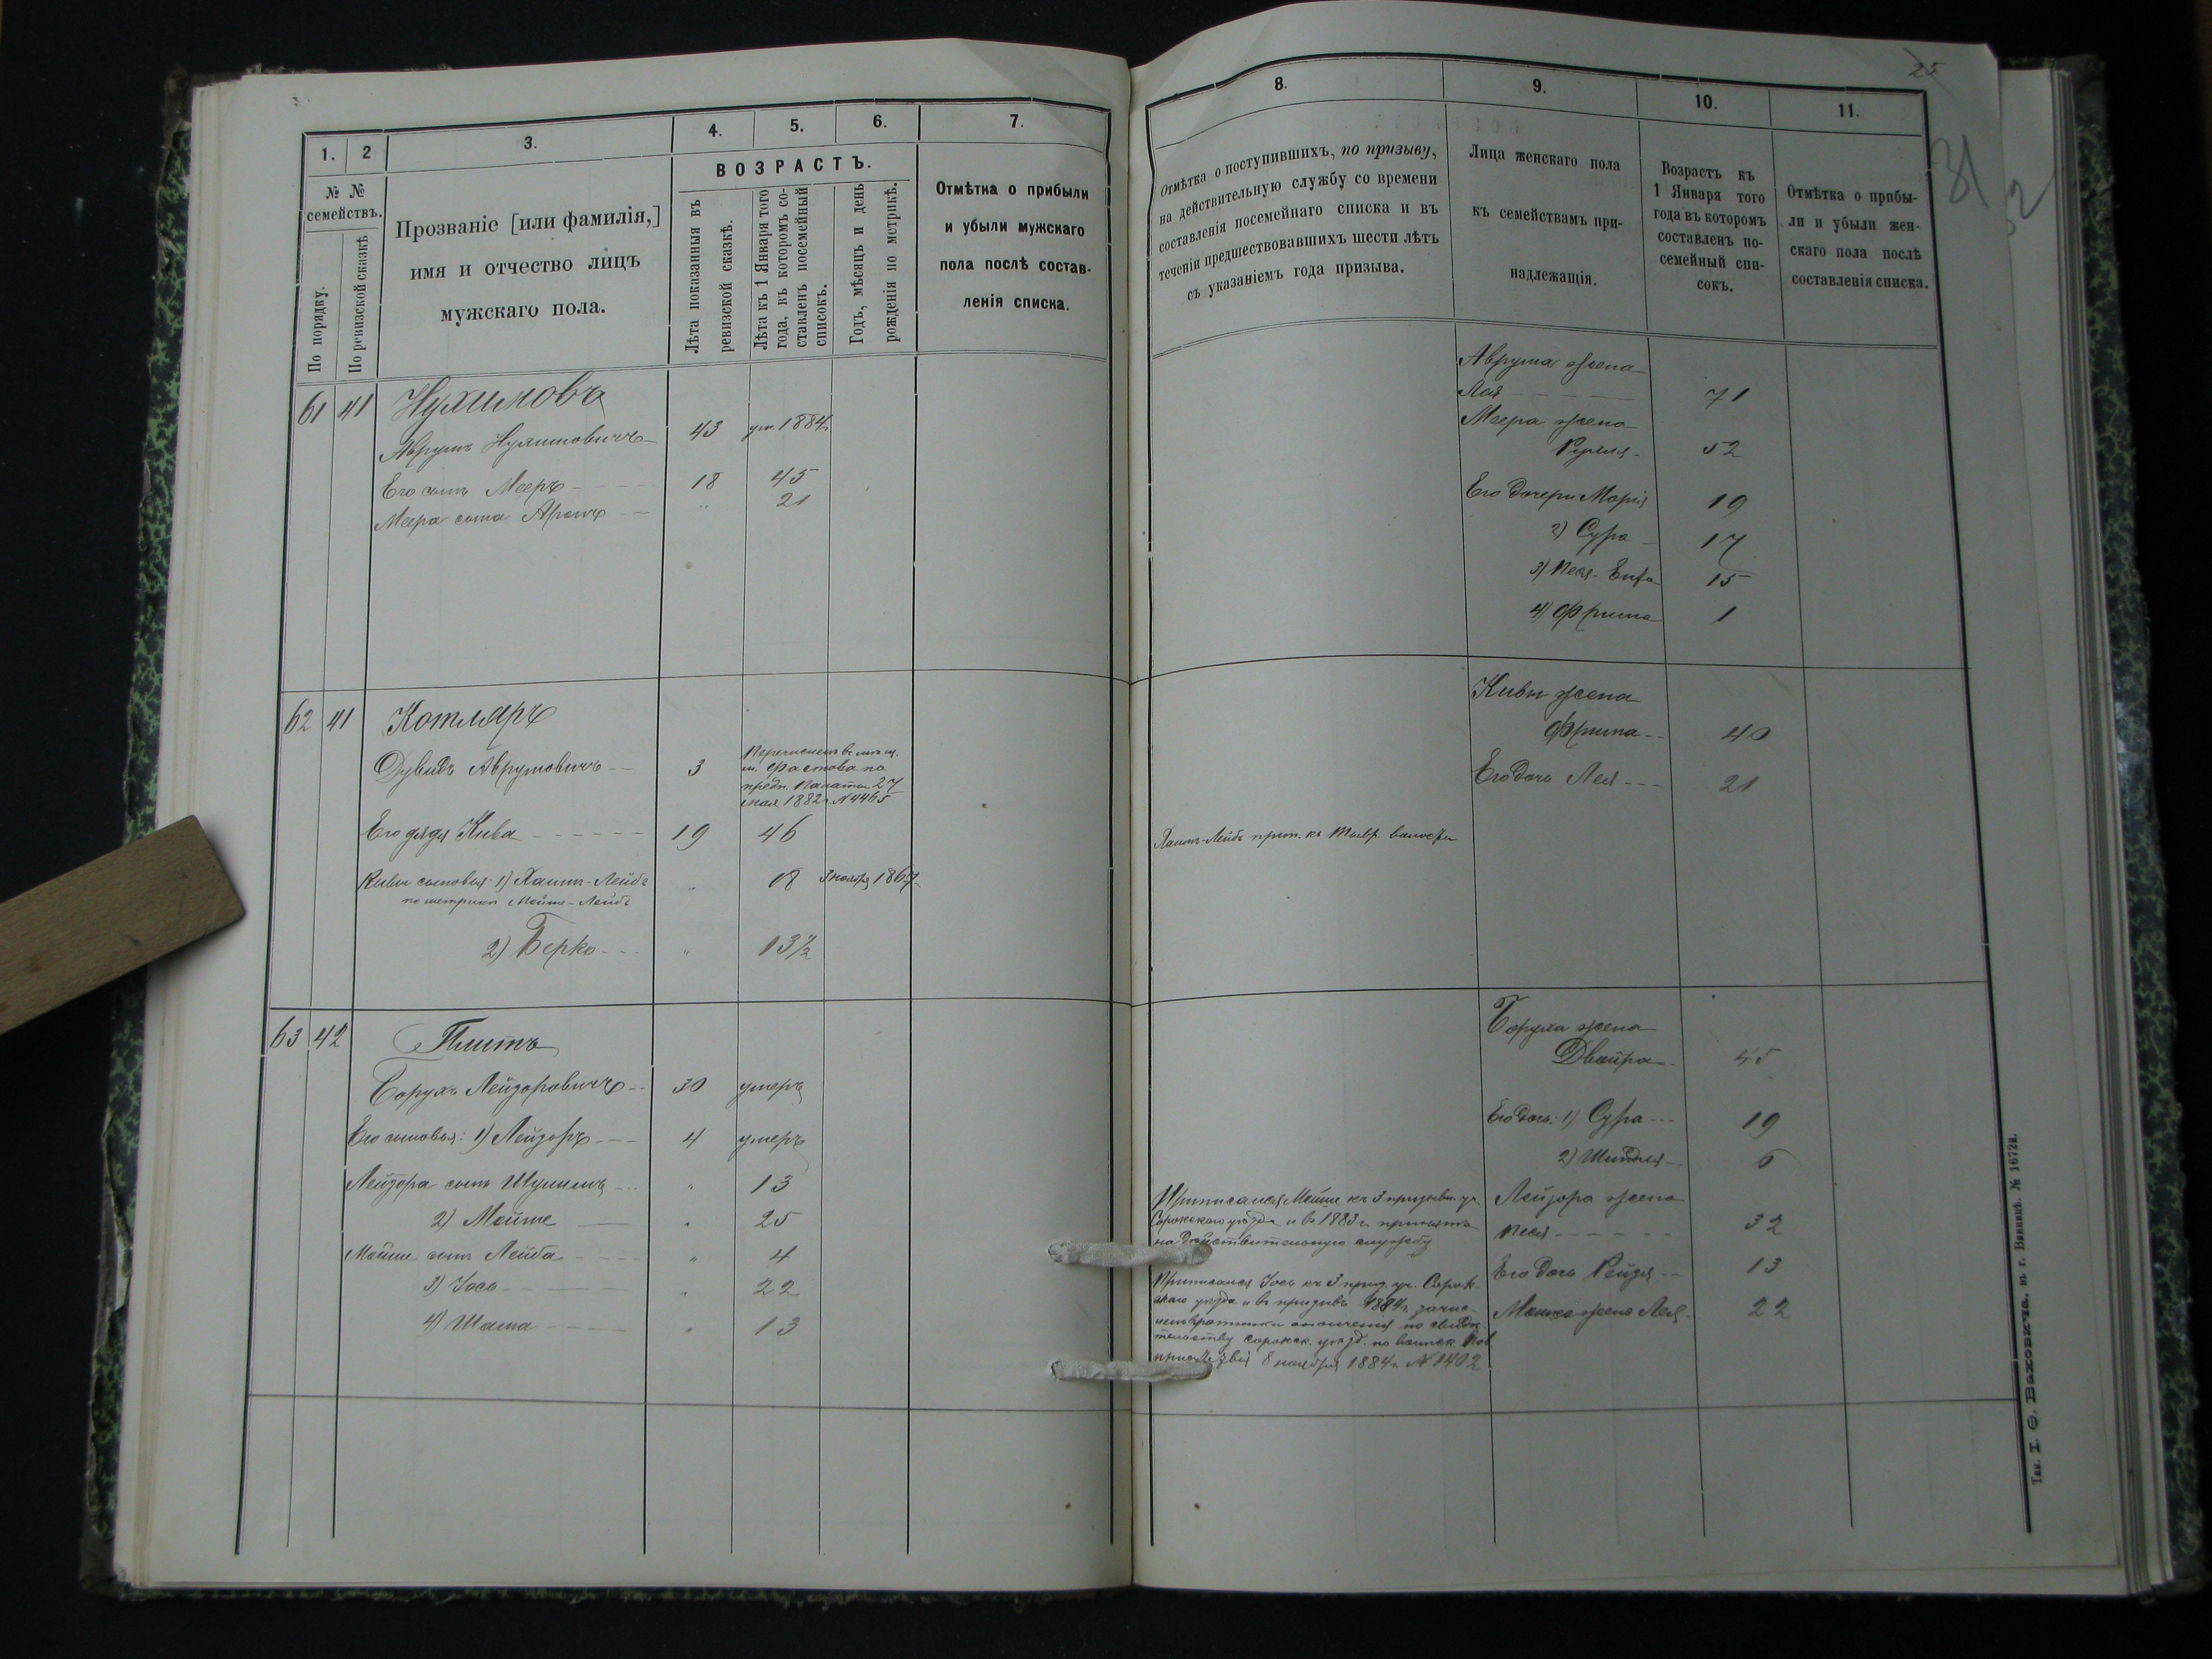 25
31
32
1. 2 3. 4. 5. 6. 7.
№ №
семействъ.
По порядку.
По ревизской сказкѣ
Прозваніе [или фамилія,]
имя и отчество лицъ
мужскаго пола.
ВОЗРАСТЪ.
Лѣта показанныя въ
ревизской сказкѣ.
Лѣта къ 1 Января того
года, въ которомъ со-
ставленъ посемейный
списокъ.
Годъ, мѣсяцъ и день
рожденія по метрикѣ.
Отмѣтка о прибыли
и убыли мужскаго
пола послѣ состав-
ленія списка.
61 41 Нухимовъ
Аврумъ Нухимовичъ 43 ум. 1884г.
Его сынъ Мееръ 18 45
Меера сынъ Аронъ " 21
62 41 Котляръ
Дувидъ Аврумовичъ 3
м. Фастова по
предп. Палаты 27
мая 1882г. №4465
Его дядя Кива 19 46
Кивы сыновья: 1) Хаимъ-Лейбъ " 18 3 ноября 1867
по метрикѣ Мойше-Лейбъ
2) Берко " 13½
63 42 Плитъ
Борухъ Лейзоровичъ 30 умеръ
Его сыновья: 1) Лейзоръ 4 умеръ
Лейзора сынъ Шулимъ " 13
2) Мойше " 25
Мойши сынъ Лейба " 4
3) Іось " 22
4) Шама " 13
8. 9. 10. 11.
Отмѣтка о поступившихъ, по призыву,
на дѣйствительную службу со времени
составленія посемейнаго списка и въ
теченіи предшествовавшихъ шести лѣтъ
съ указаніемъ года призыва.
Лица женскаго пола
къ семействамъ при-
надлежащія.
Возрастъ къ
1 Января того
года въ которомъ
составленъ по-
семейный спи-
сокъ.
Отмѣтка о прибы-
ли и убыли жен-
скаго пола послѣ
составленія списка.
Аврума жена
Лея 71
Меера жена
Рухля 52
Его дочери Марія 19
2) Сура 17
3) Песя-Ента 15
4) Фрима 1
Кивы жена
Фрима 40
Его дочь Лея 21
Хаимъ-Лейбъ прип. къ Тывр. волости
Боруха жена
Двойра 45
Его дочь: 1) Сура 19
2) Шейндля 6
Приписался Мойше къ 3 призывн. уч.
Сорокскаго уѣзда и въ 1883г. принятъ
на дѣйствительную службу
Лейзора жена
Песя 32
Его дочь Рейзя 13
Мошка жена Лея 22
Приписался Іось къ 3 приз. уч. Сорок-
скаго уѣзда и въ призывъ 1884г. зачис-
ленъ ратники ополченія по свидѣ-
тельству сорокск. уѣзд. по воинск. пов.
присутствія 8 ноября 1884г. №1402
Тип. І. Ѳ. Баховича, въ г. Винницѣ. № 1672а.